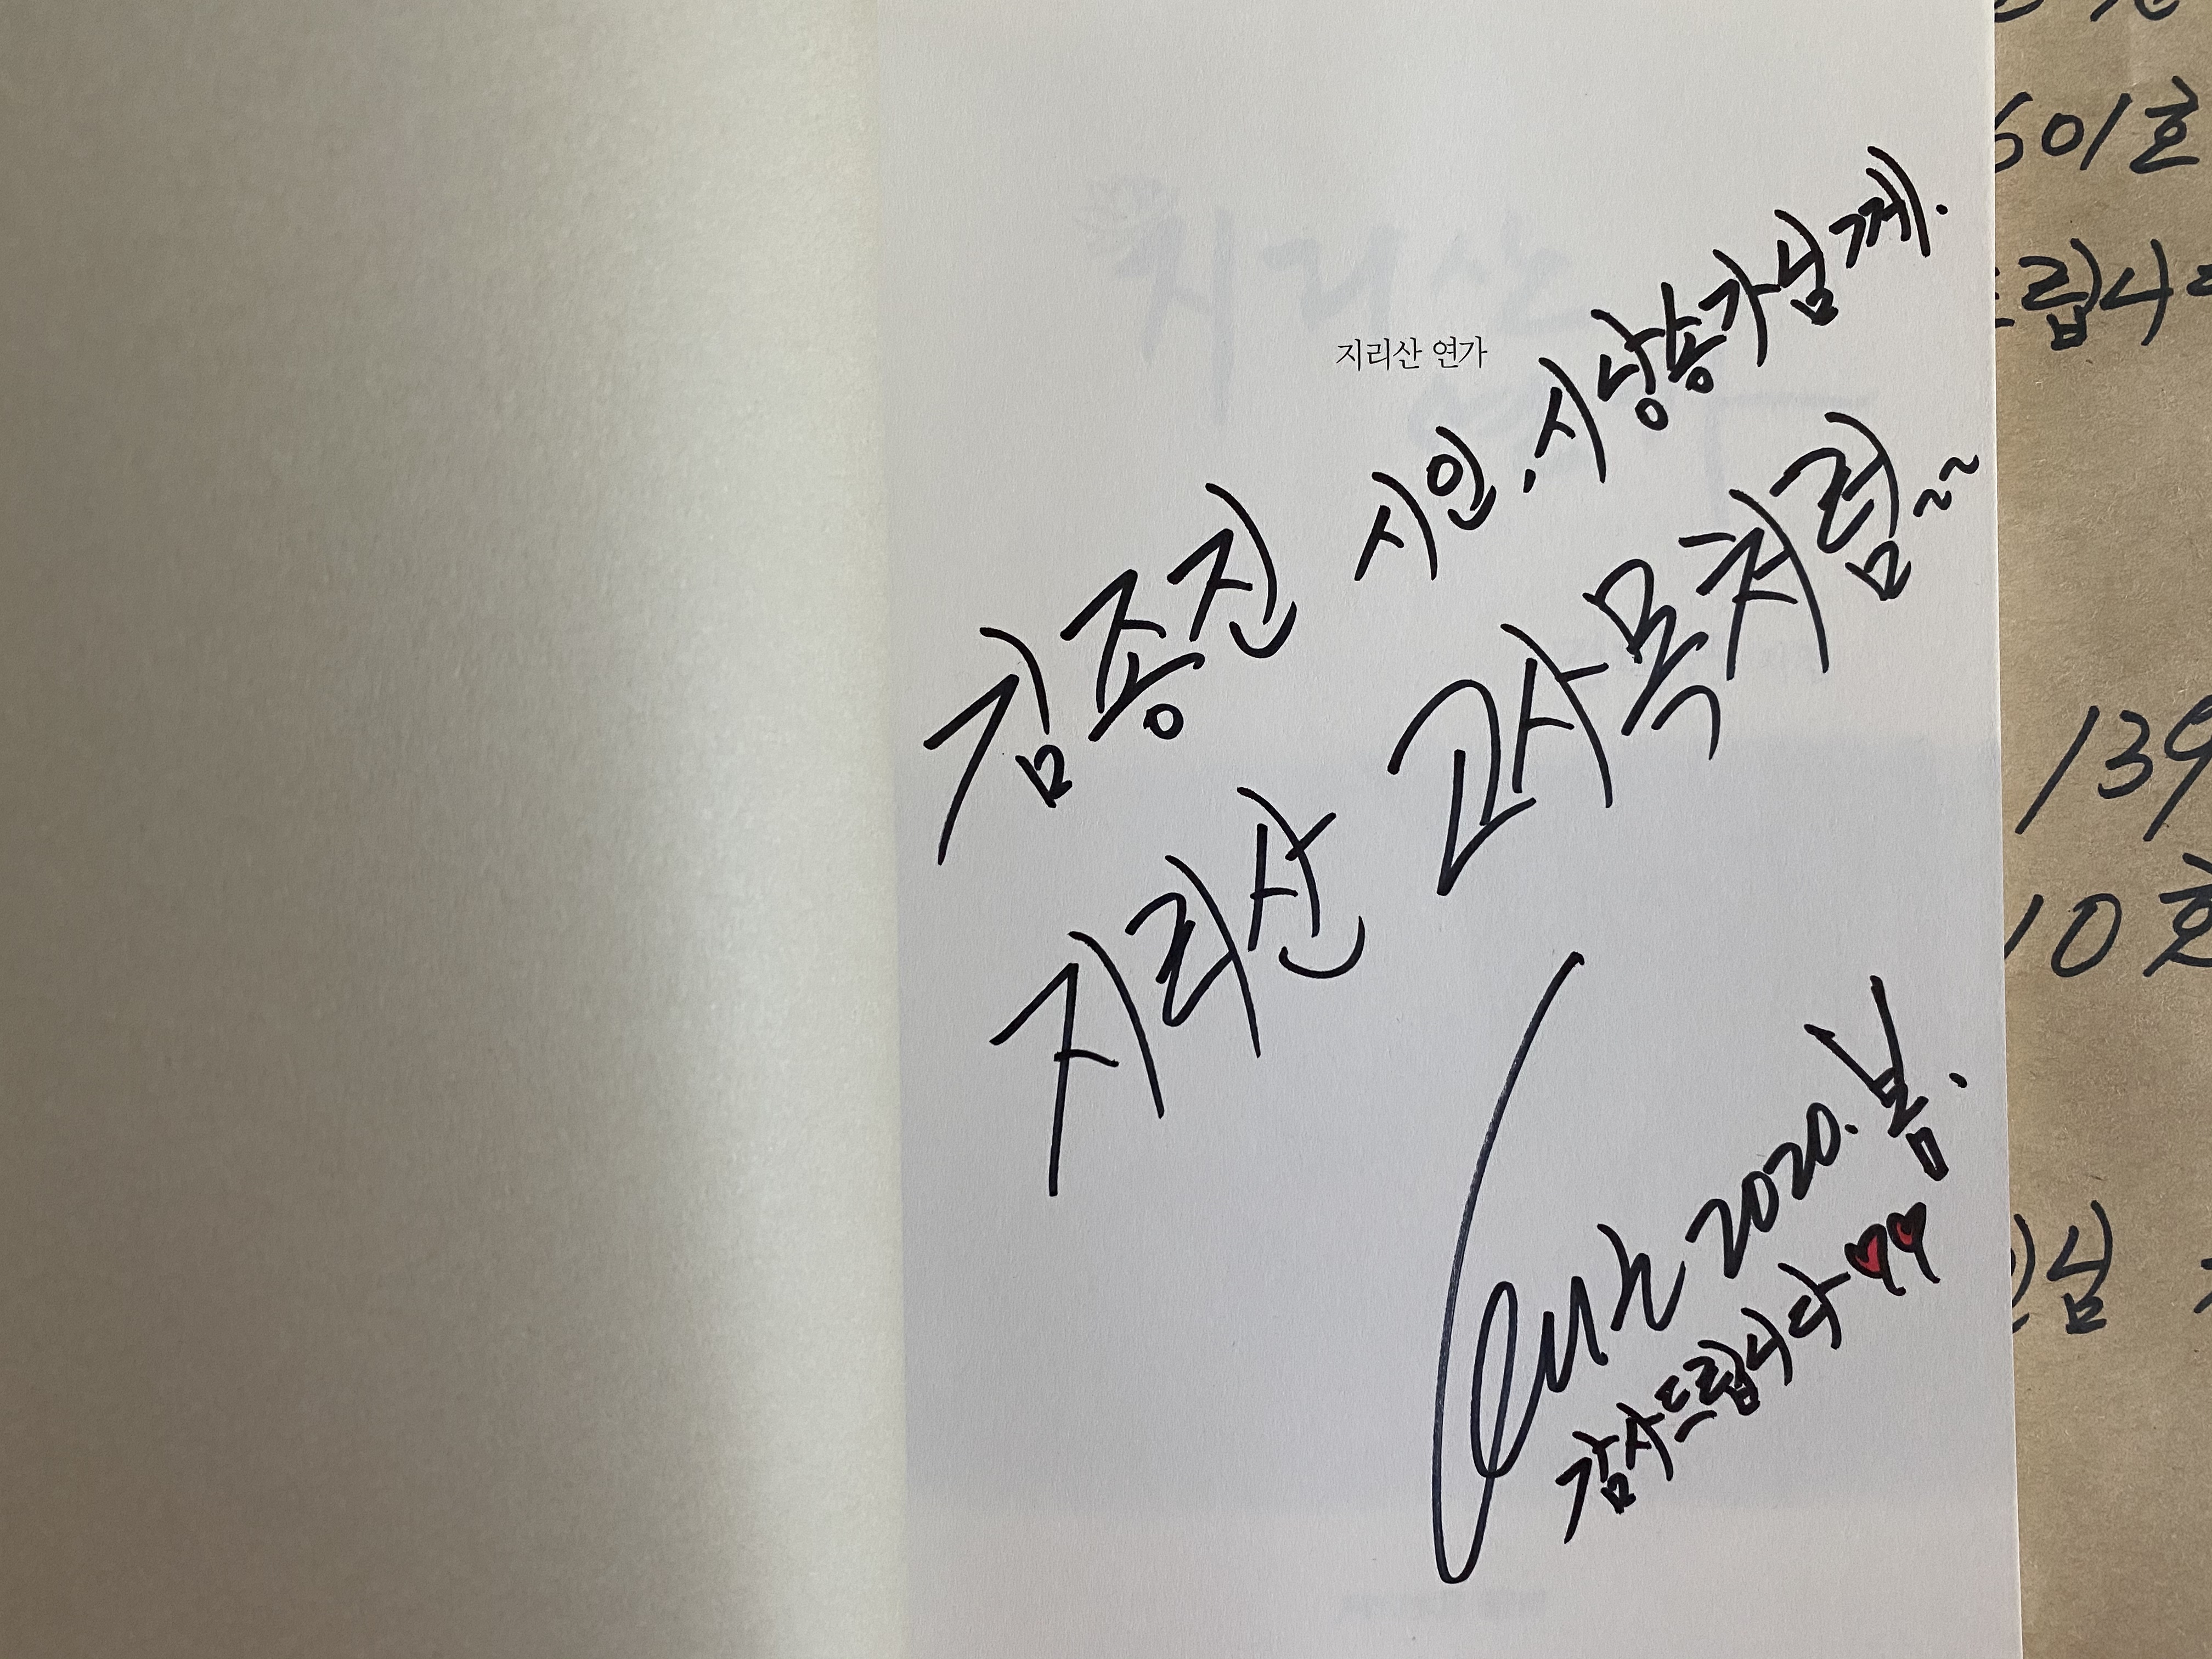 지리산 연가
김종진 시인.시낭송가님께.
지리산 고사목처럼~~
2020.봄.
감사드립니다
601호
드립니다
139
10호
님